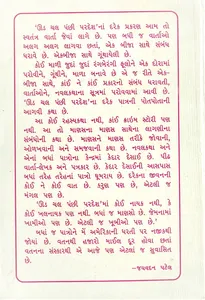 'ઊડ ચલ પંછી પરદેશ'નાં દરેક પ્રકરણ આમ તો
સ્વતંત્ર વાર્તા જેવાં લાગે છે. પણ બધી જ વાર્તાઓ
અલગ અલગ લાગવા છતાં, એક બીજા સાથે સંબંધ
ધરાવે છે. એકબીજા સાથે ગૂંથાયેલી છે.
કોઈ માળી જુદાં જુદાં રંગબેરંગી ફૂલોને એક દોરામાં
પરોવીને, ગૂંથીને, માળા બનાવે છે એ જ રીતે એક-
બીજા સાથે, કોઈ ને કોઈ પ્રકારનો સંબંધ ધરાવતી,
વાર્તાઓને, નવલકથાના સૂત્રમાં પરોવવામાં આવી છે.
'ઊડ ચલ પંછી પરદેશ'ના દરેક પાત્રની પોતપોતાની
આગવી કથા છે.
આ કોઈ રહસ્યકથા નથી. કોઈ ક્રાઇમ સ્ટોરી પણ
નથી. આ તો માણસના માણસ સાથેના લાગણીના
સંબંધોની કથા છે. માણસને માણસ તરીકે જોવાની,
ઓળખવાની અને સમજવાની કથા છે. નવલકથા અને
એનાં બધાં પાત્રોના કેન્દ્રમાં કેદાર દેસાઈ છે. પીઢ
વાર્તા-લેખક અને પત્રકાર. કેદાર દેસાઈની આસપાસ
બધાં તરેહ તરેહનાં પાત્રો ઘૂમરાય છે. દરેકના જીવનની
કોઈ ને કોઈ વાત છે. કરુણ પણ છે, એટલી જ
મંગલ પણ છે.
'ઊડ ચલ પંછી પરદેશ'માં કોઈ નાયક નથી, કે
કોઈ ખલનાયક પણ નથી. બધાં જ માણસો છે. જેમનામાં
ખામીઓ પણ છે. એટલી જ ખૂબીઓ પણ છે.'
બધાં જ પાત્રોને મેં અમેરિકાની ધરતી પર નજીકથી
જોયાં છે. વતનથી હજારો માઈલ દૂર હોવા છતાં
વતનના સંસ્કારથી એ આજે પણ એટલાં જ સુવાસિત
છે.
– જયવદન પટેલ